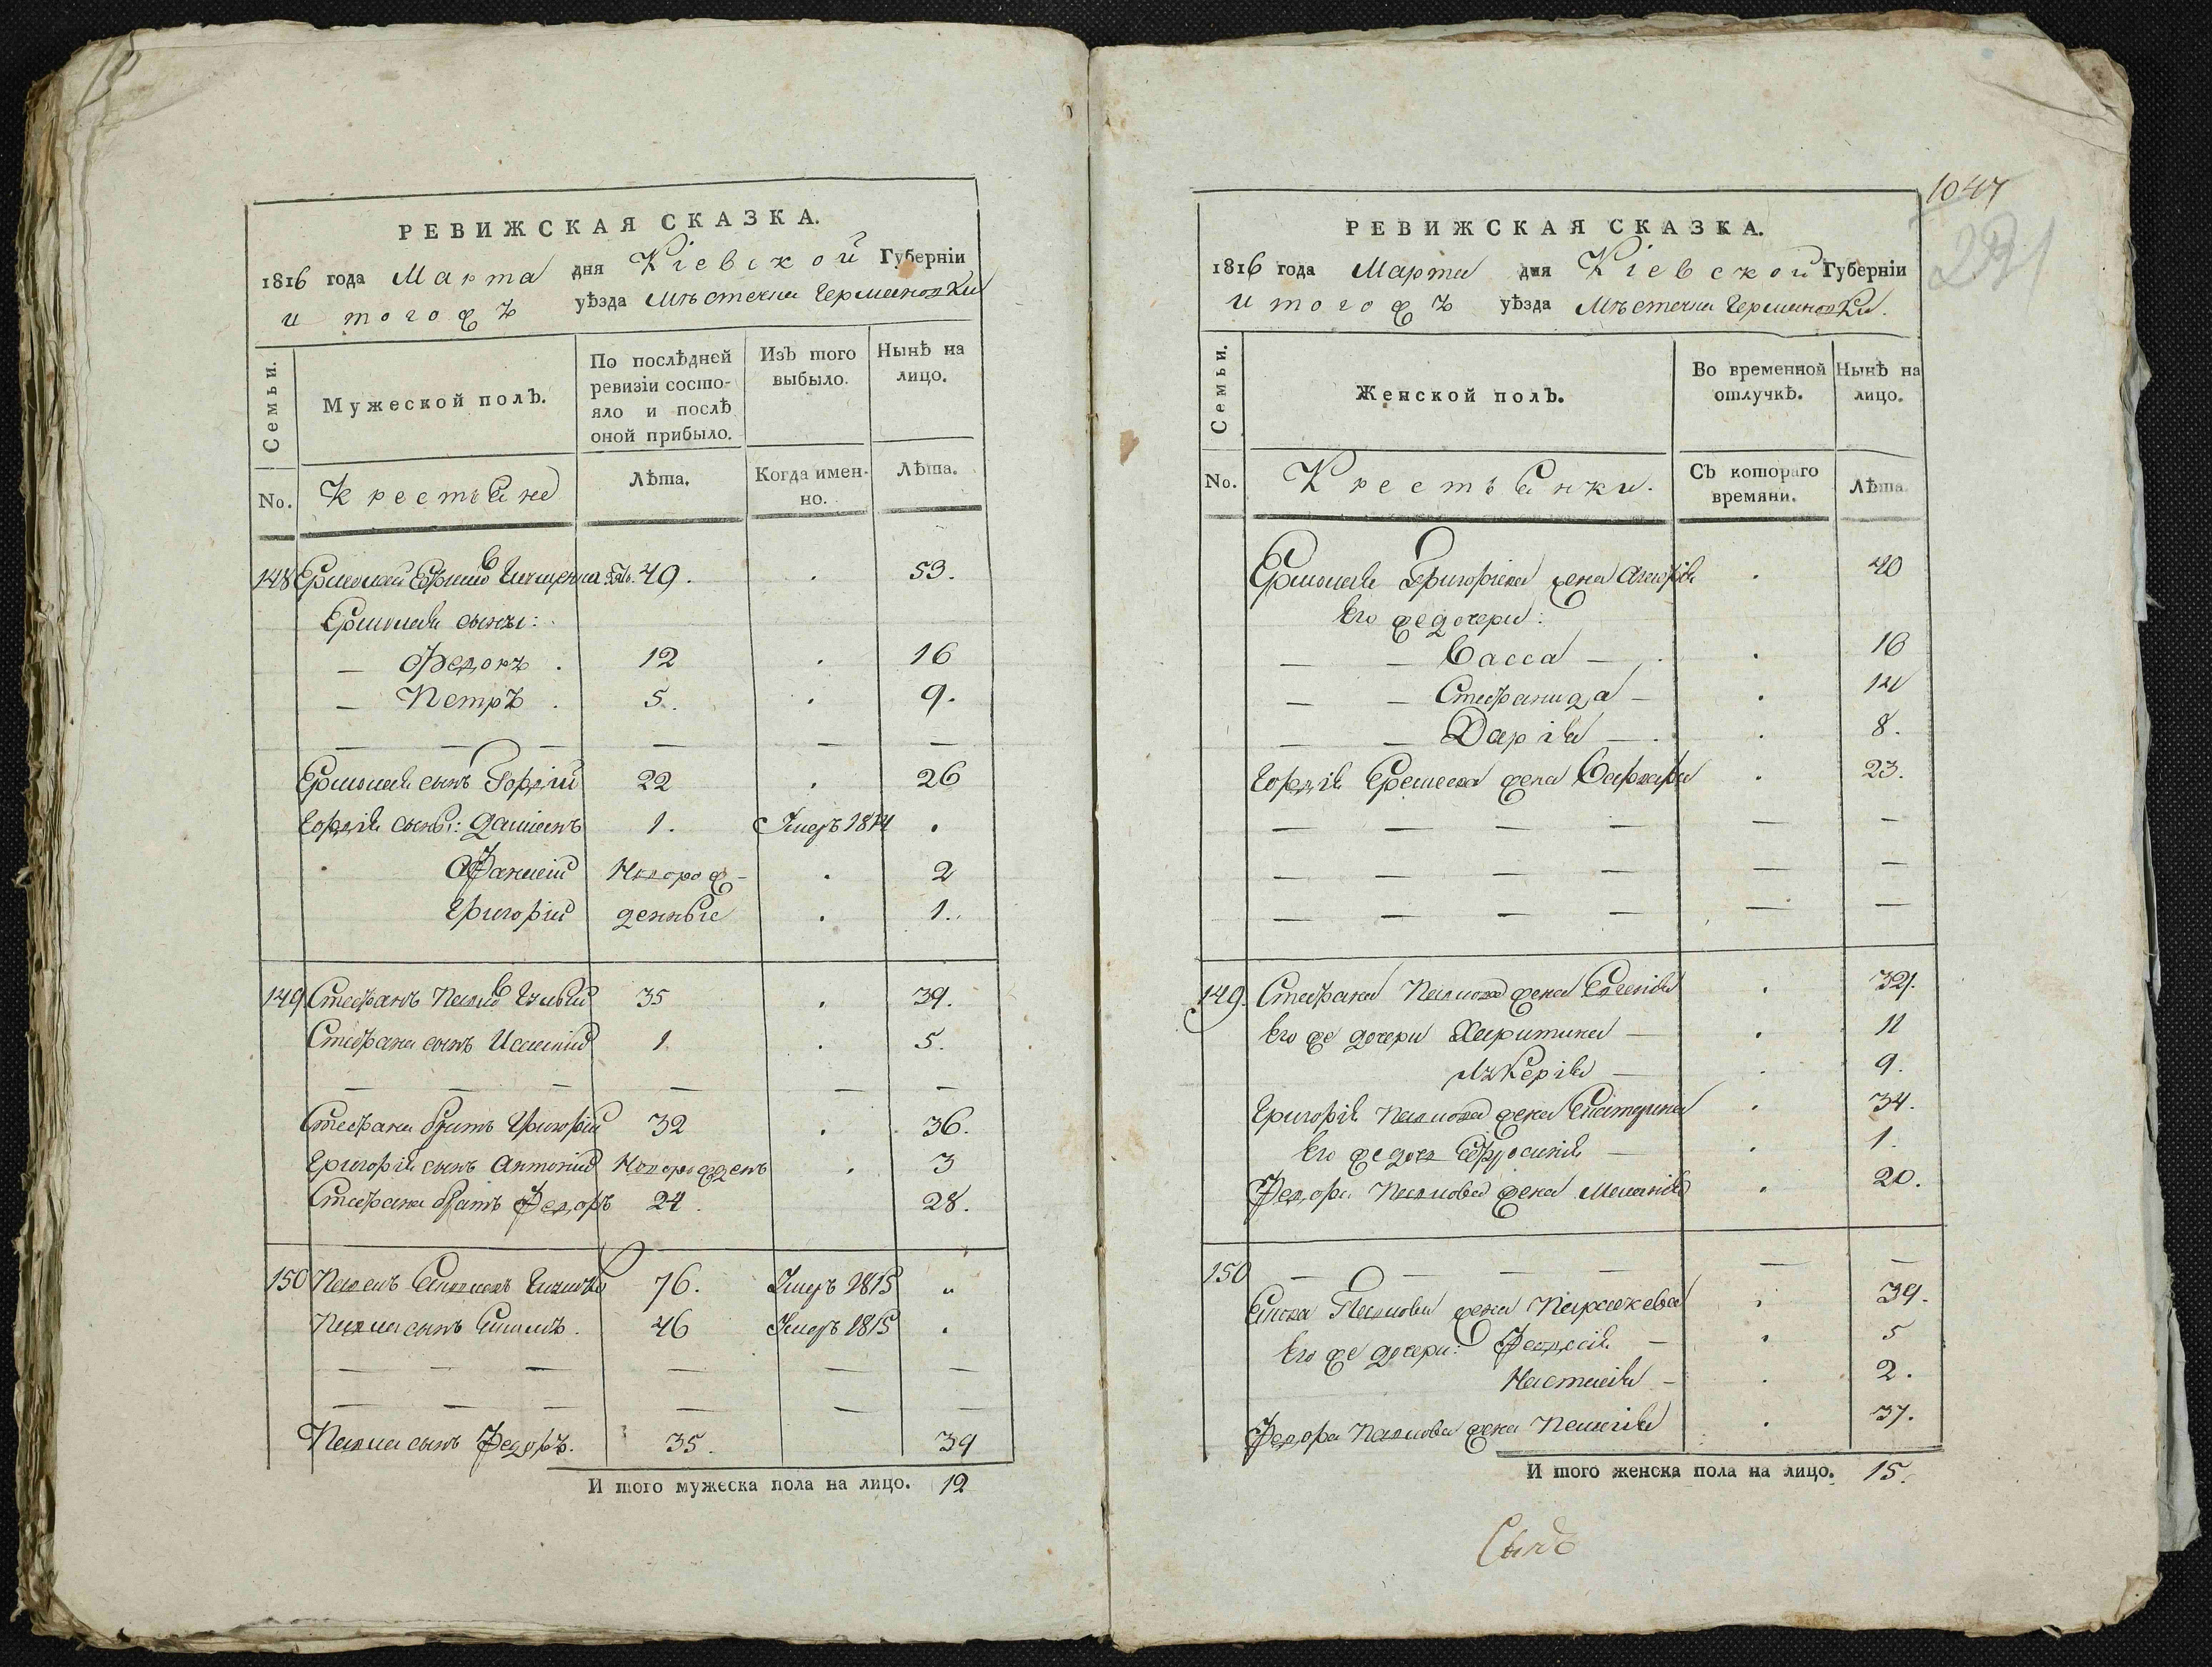 РЕВИЖСКАЯ СКАЗКА.
1816 года Марта дня Кіевской Губерніи
и тогожъ уѣзда Мѣстечка Германовки
Семьи.
Мужеской полъ.
По послѣдней ревизіи состояло и послѣ оной прибыло.
Изъ того выбыло.
Нынѣ на лицо.
No.
Крестьяне
Лѣта.
Когда именно.
Лѣта.
148 49. . 53.
сыны:
— Федоръ . 12 . 16
— Петръ . 5. . 9.
— — — — — —
сынъ Гордій 22 . 26
Гордія сыны: Даміанъ 1. Умеръ 1814 .
Афанасій Новорож- . 2
Григорій денные . 1.
149 Стефанъ Павловъ 35 . 39.
Стефана сынъ 1 . 5.
— — — — — —
Стефана братъ Григорій 32 . 36.
Григорія сынъ Антоній Новорожденъ . 3
Стефана братъ Федоръ 24. 28.
150 Павелъ 76. Умеръ 1815 "
Павла сынъ 46 Умеръ 1815 .
— — — — — —
— — — — — —
Павла сынъ Федоръ. 35. 39
И того мужеска пола на лицо. 12
1047
РЕВИЖСКАЯ СКАЗКА.
1816 года Марта дня Кіевской Губерніи
и тогожъ уѣзда Мѣстечка Германовки.
Семьи.
Женской полъ.
Во временной отлучкѣ.
Нынѣ на лицо.
No.
Крестьянки.
Съ котораго времяни.
Лѣта
жена . 40
Его же дочери:
— — Васса — . 16
— — Стефанида — . 14
— — Дарія — . 8.
Гордія жена Варвара . 23.
— — — — — —
— — — — — —
— — — — — —
149. Стефана Павлова жена Евгенія .
Его же дочери Харитина — . 11
Лукерія — . 9.
Григорія Павлова жена Екатерина . 34.
Его же дочь Ефросинія — . 1.
Федора Павлова жена Меланія . 20.
150 — — — — — —
Павлова жена Параскева . 39.
Его же дочери: Федосія — . 5
Настасія — . 2.
Федора Павлова жена Пелагія . 37.
И того женска пола на лицо. 15.